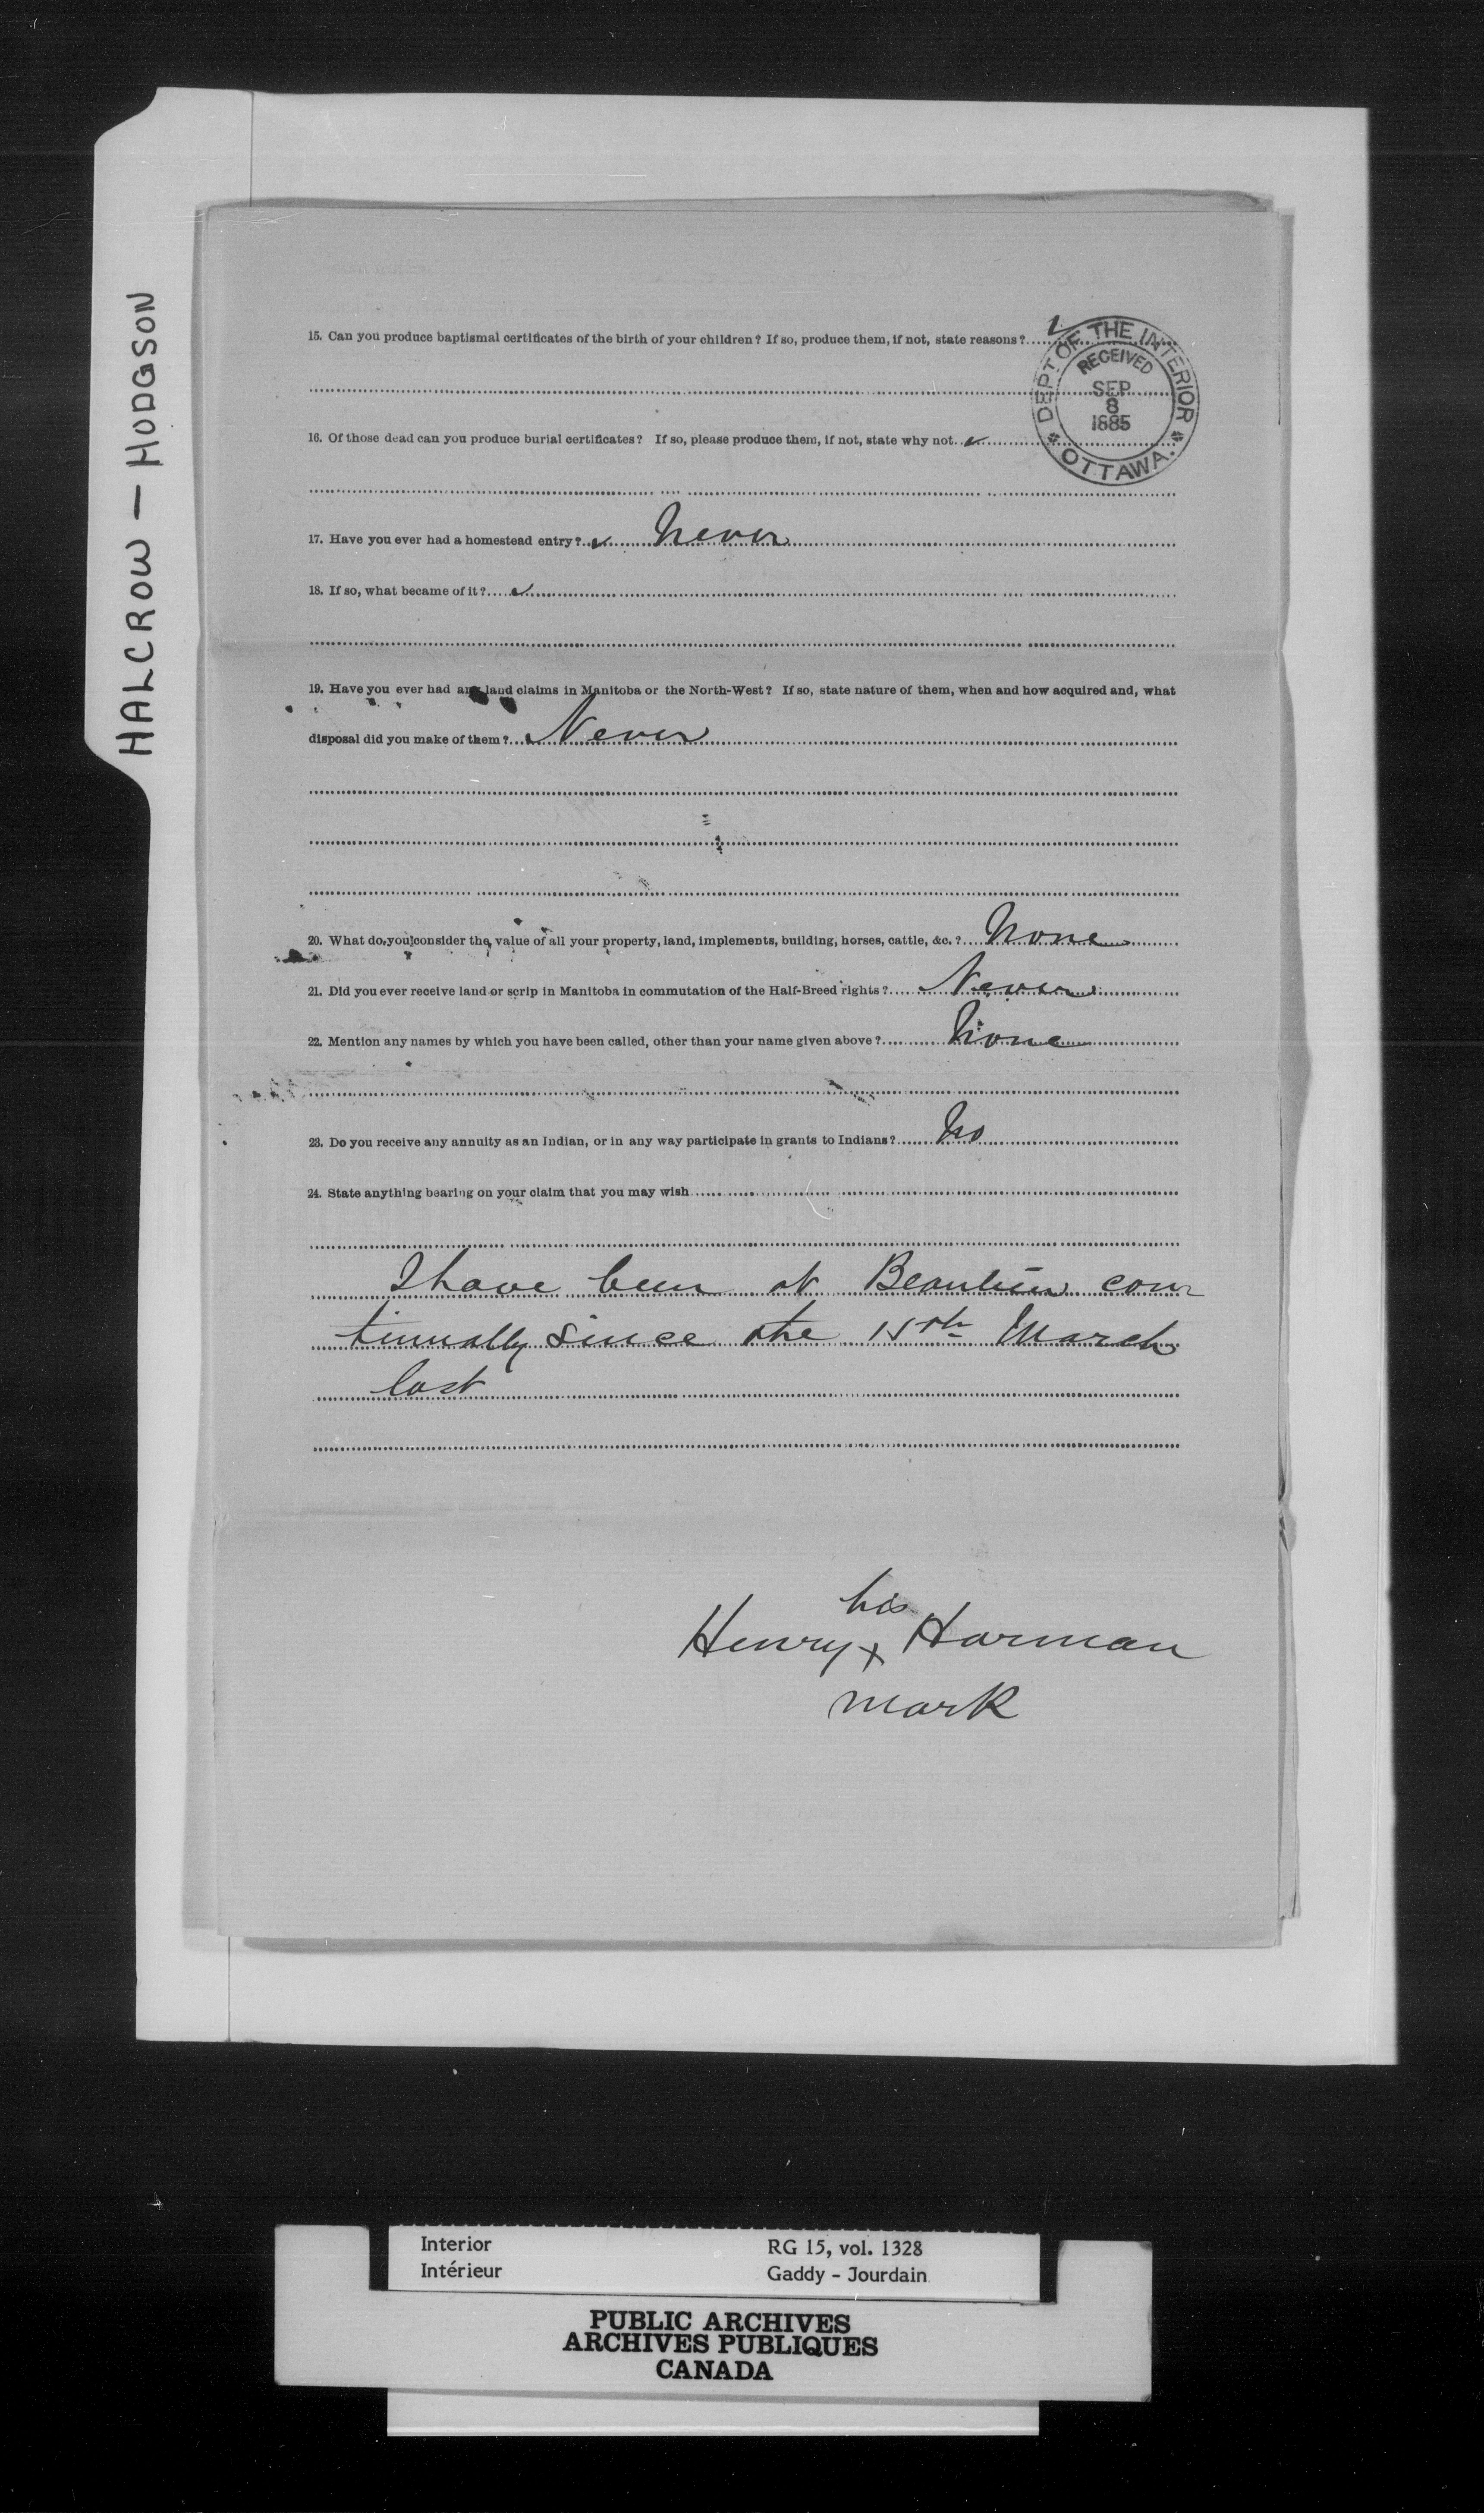 HALCROW — HODGSON
15. Can you produce baptismal certificates of the birth of your children? If so, produce them, if not, state reasons?
DEPT OF THE INTERIOR
RECEIVED
SEP
8
1885
OTTAWA.
16. Of those dead can you produce burial certificates? If so, please produce them, if not, state why not
17. Have you ever had a homestead entry? Never
18. If so, what became of it?
19. Have you ever had any land claims in Manitoba or the North-West? If so, state nature of them, when and how acquired and, what
disposal did you make of them? Never
20. What do you consider the value of all your property, land, implements, building, horses, cattle, &c.? None
21. Did you ever receive land or scrip in Manitoba in commutation of the Half-Breed rights? Never
22. Mention any names by which you have been called, other than your name given above? None
23. Do you receive any annuity as an Indian, or in any way participate in grants to Indians? No
24. State anything bearing on your claim that you may wish
I have been at con
tinually since the 15th March
last
his
Henry x Harman
mark
Interior RG 15, vol. 1328
Intérieur Gaddy - Jourdain
PUBLIC ARCHIVES
ARCHIVES PUBLIQUES
CANADA